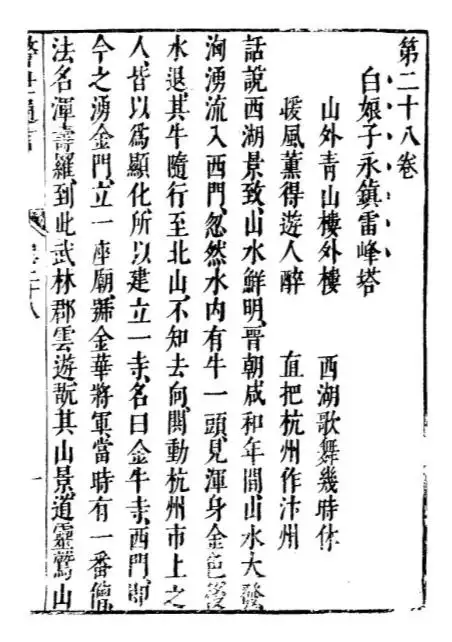 第二十八卷
白娘子永鎮雷峰塔
山外青山樓外樓　西湖歌舞幾時休
暖風薰得遊人醉　直把杭州作汴州
話說西湖景致、山水鮮明、晉朝咸和年間山水大發
洶湧流入西門、忽然水內有牛一頭、見渾身金色後
水退、其牛隨行至北山、不知去向、鬨動杭州市上之
人、皆以爲顯化所以建立一寺、名曰金牛寺、西門、即
今之湧金門、立一座廟、號金華將軍、當時有一番僧
法名渾壽羅、到此武林郡雲遊、翫其山景、道靈鷲山
卷二十八
一